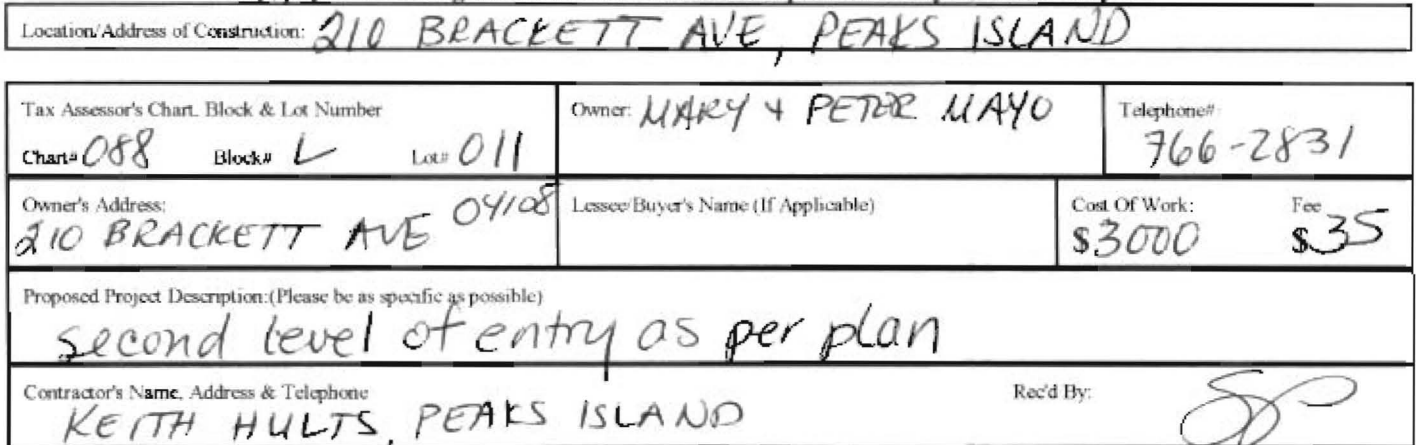 Location/Address of Construction: 210 BRACKETT AVE, PEAKS ISLAND
Tax Assessor's Chart. Block & Lot Number
Chart# 088 Block# L Lot# 011
Owner: MARY & PETER MAYO
Telephone#:
766-2831
Owner's Address: 04108
210 BRACKETT AVE
Lessee/Buyer's Name (If Applicable)
Cost Of Work:
$3000
Fee
$35
Proposed Project Description:(Please be as specific as possible)
second level of entry as per plan
Contractor's Name, Address & Telephone
KEITH HULTS, PEAKS ISLAND
Rec'd By: